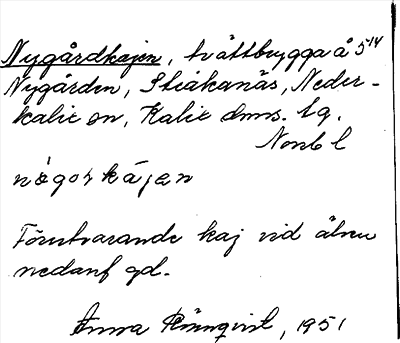 Nygårdkajen, tvättbrygga å 5¹⁴
Nygården, Stråkanäs, Neder-
kalix sn, Kalix dmns. tg.
Nonb l
någorkájen
Förutvarande kaj vid älven
nedanf gd.
Anna Rönnqvist, 1951